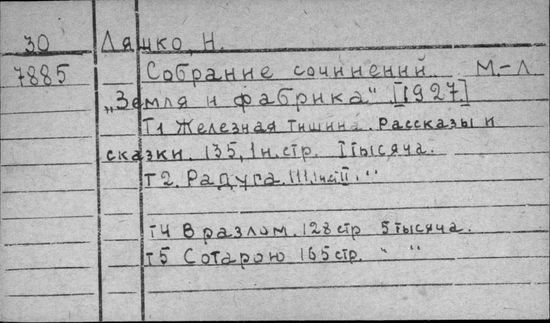 30 Ляшко, Н.
7885 Собрание сочинений. М.-Л
„Земля и фабрика" [1927]
Т1 Железная тишина. Рассказы и
сказки. 135, 1н.стр. тысяча.
Т2. Радуга. 111, "
Т4 В разлом. 128 стр 5 тысяча.
Т5 С отарою 165 стр. " "